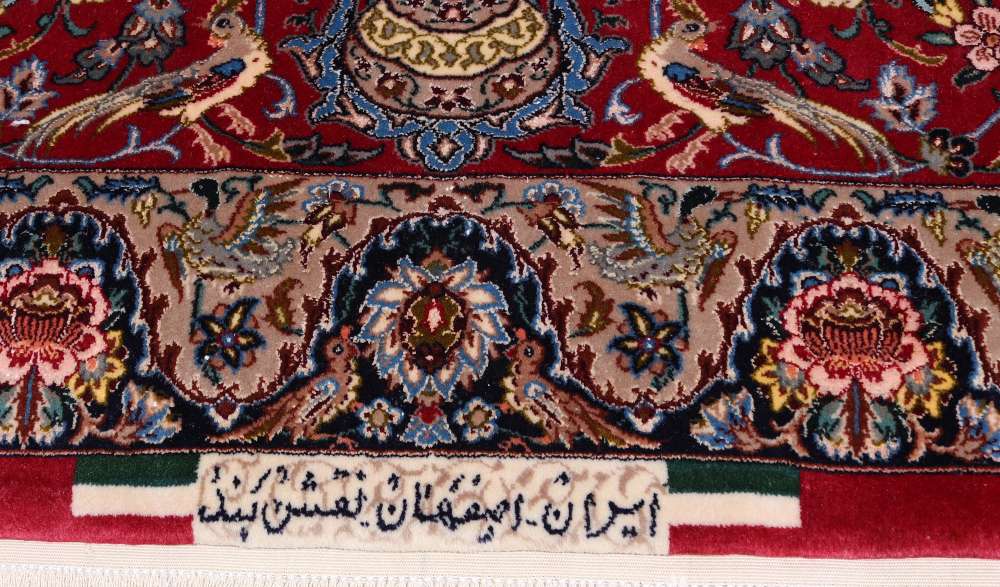 ایران - اصفهان نقش بند